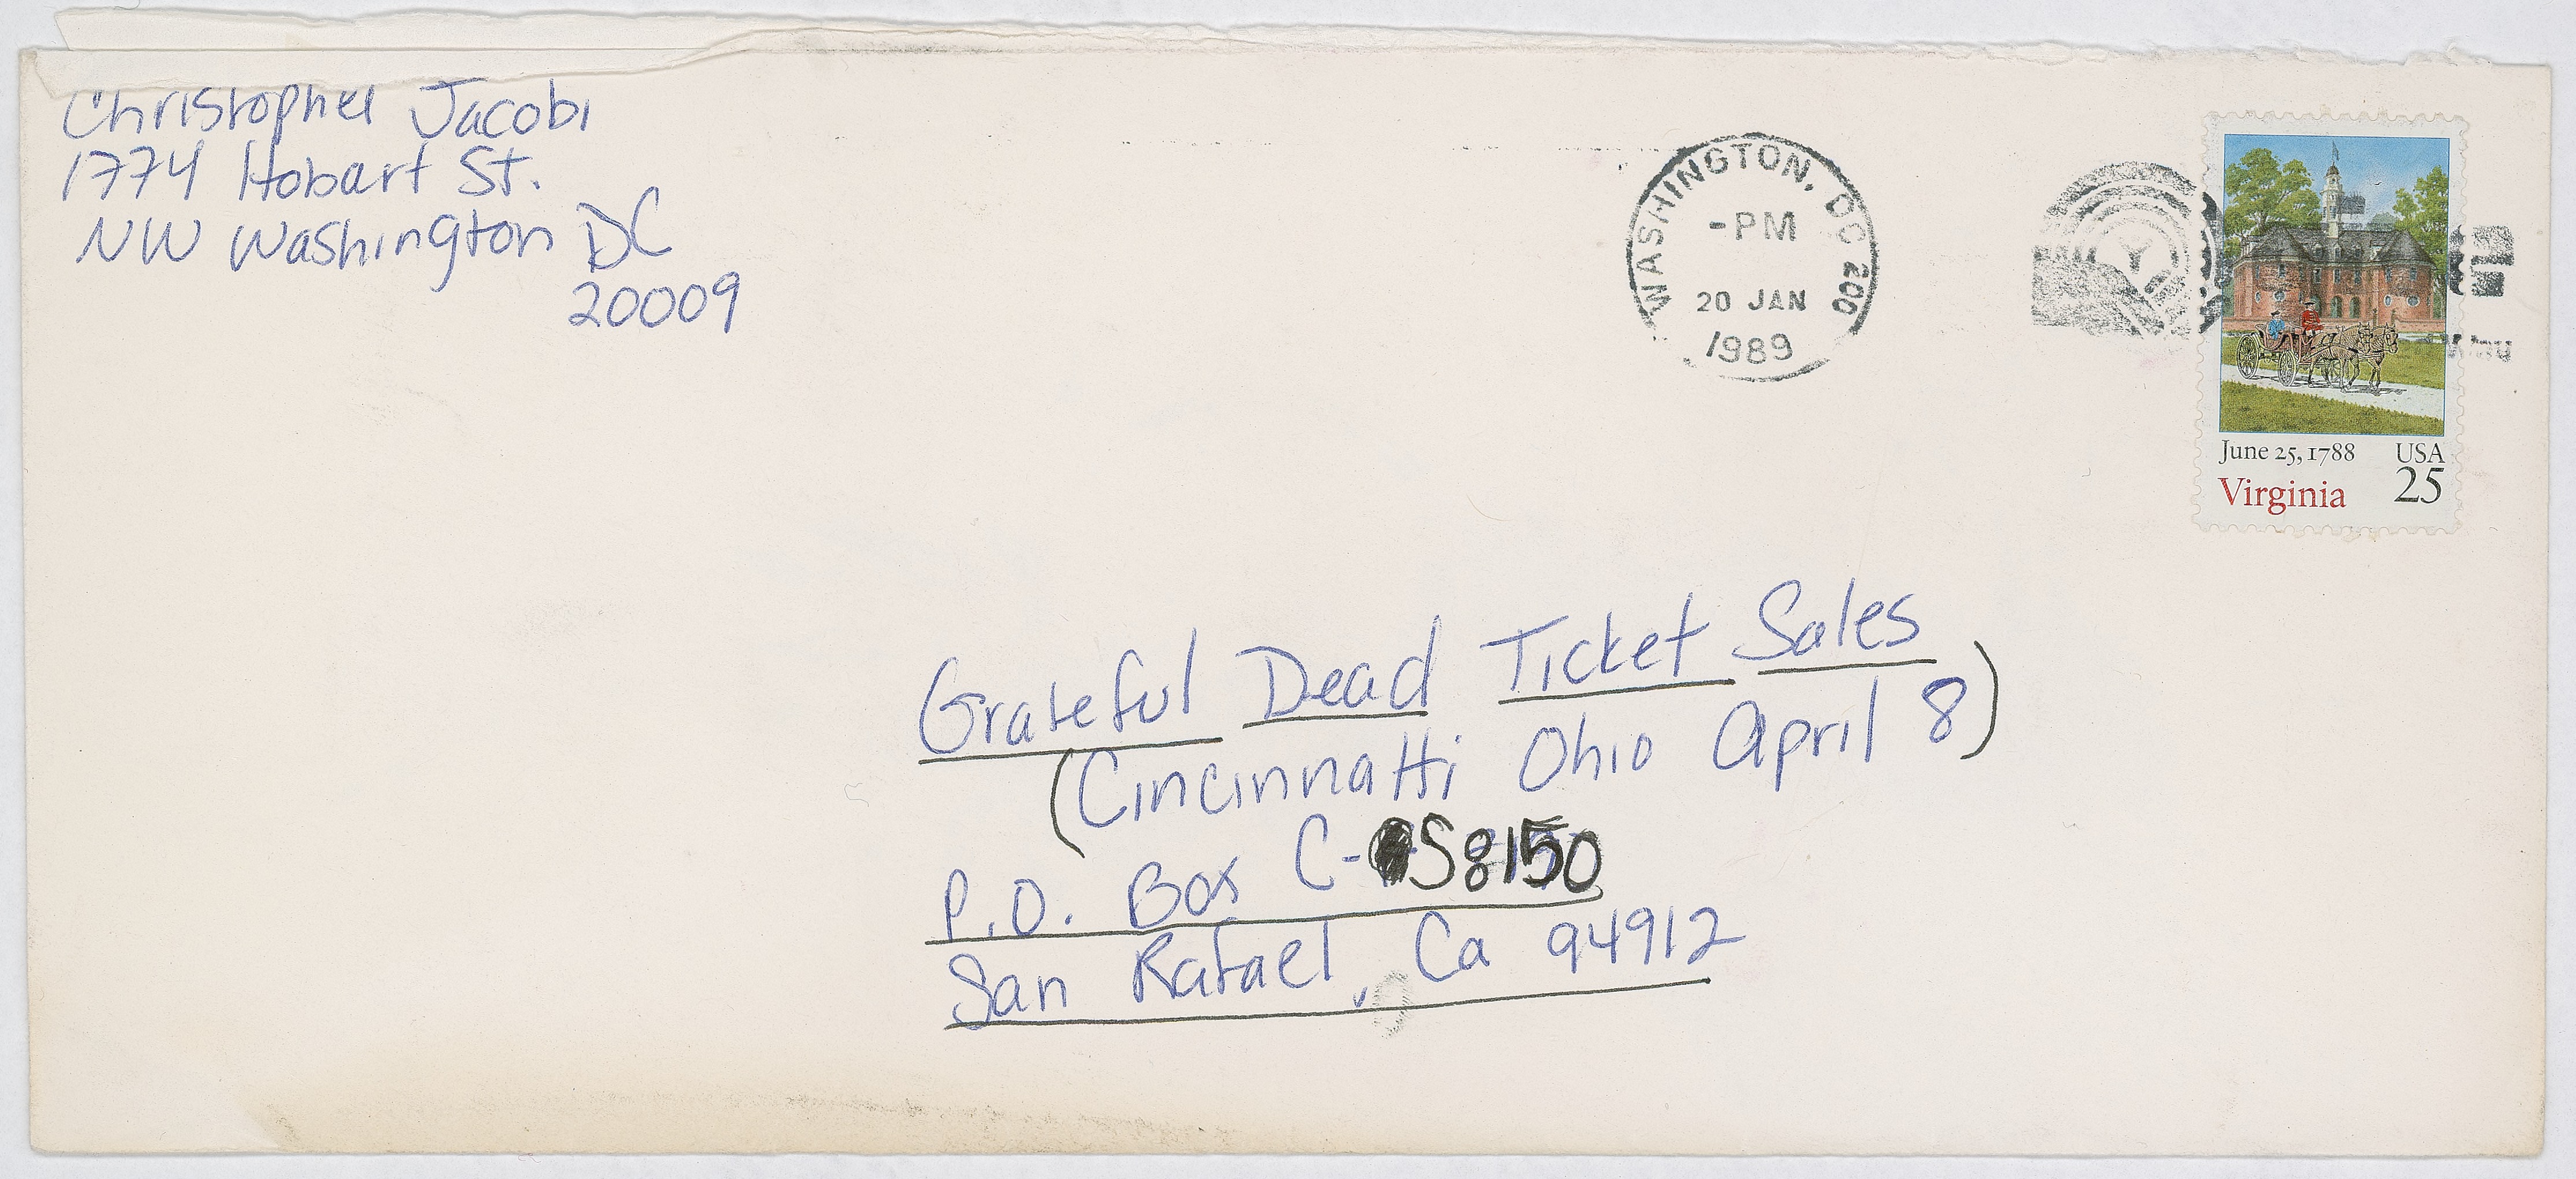 Christopher Jacobi
1774 Hobart St.
NW Washington DC
20009
WASHINGTON, DC 200
-PM
20 JAN
1989
June 25, 1788 USA
Virginia 25
Grateful Dead Ticket Sales
(Cincinnatti Ohio April 8)
P.O. Box C-S8150
San Rafael, Ca 94912